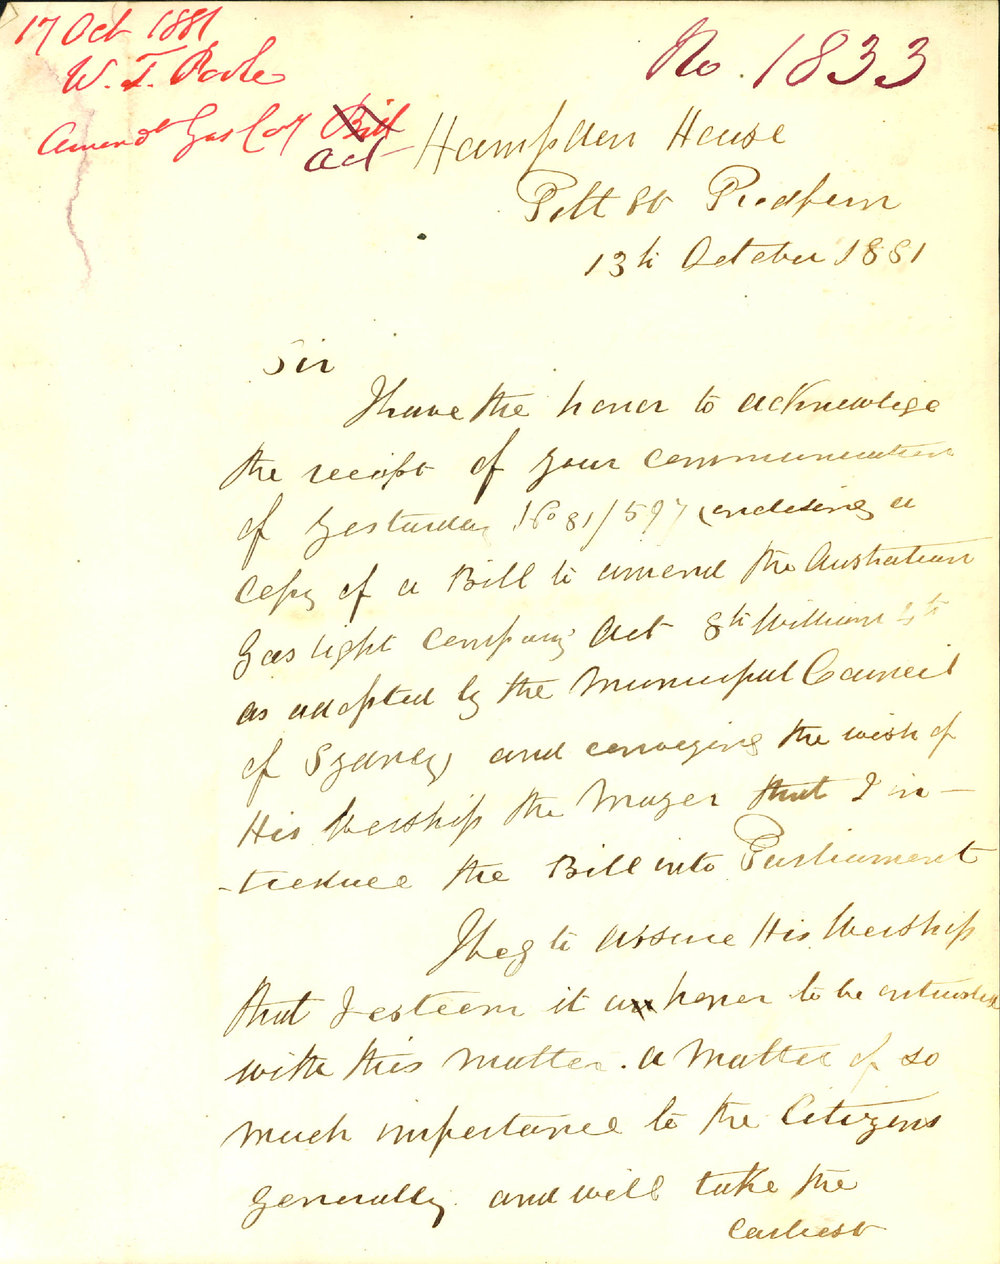 17 Oct 1881
W. J. Poole
Amendt Gas Coy Bill
Act
No. 1833
Hampden House
Pitt St Redfern
13th October 1881
Sir
I have the honor to acknowledge
the receipt of your communication
of yesterday No 81/597 enclosing a
copy of a Bill to amend the Australian
Gas light Company Act 8th William 4th
as adopted by the Municipal Council
of Sydney and conveying the wish of
His Worship the Mayor that I in-
-troduce the Bill into Parliament
I beg to assure His Worship
that I esteem it an honor to be entrusted
with this matter. a matter of so
much importance to the Citizens
generally. and will take the
earliest